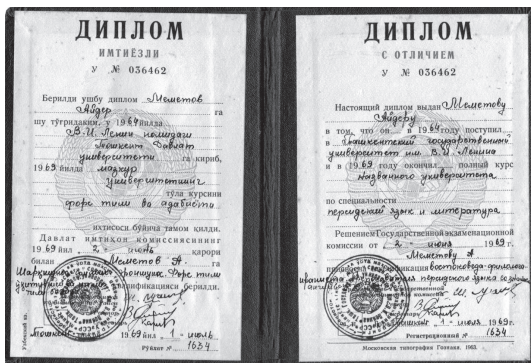 ДИПЛОМ
ИМТИЁЗЛИ
У № 036462
Берилди ушбу диплом Меметов
Айдер га
шу тўғридаким, у 1964 йилда
В.И. Ленин номидаги
Тошкент Давлат
университети га кириб,
1969 йилда мазкур
университетнинг
тўла курсини
форс тили ва адабиёти
ихтисоси бўйича тамом қилди.
Давлат имтиҳон комиссиясининг
1969 йил 2 - июнь қарори
билан Меметов А. га
Форс тили
квалификацияси берилди.
Тошкент 1969 йил 1 - июль
Рўйхат № 1634
Узбекский яз.
ДИПЛОМ
С ОТЛИЧИЕМ
У № 036462
Настоящий диплом выдан Меметову
Айдеру
в том, что он в 1964 году поступил
в Ташкентский государственный
университет им. В.И. Ленина
и в 1969 году окончил полный курс
названного университета
по специальности
персидский язык и литература
Решением Государственной экзаменационной
комиссии от 2 - июня 1969 г.
Меметову А.
присвоена квалификация востоковеда-филолога-
преподавателя персидского языка
Ташкент 1 - июля 1969 г.
Регистрационный № 1634
Московская типография Гознака. 1963.